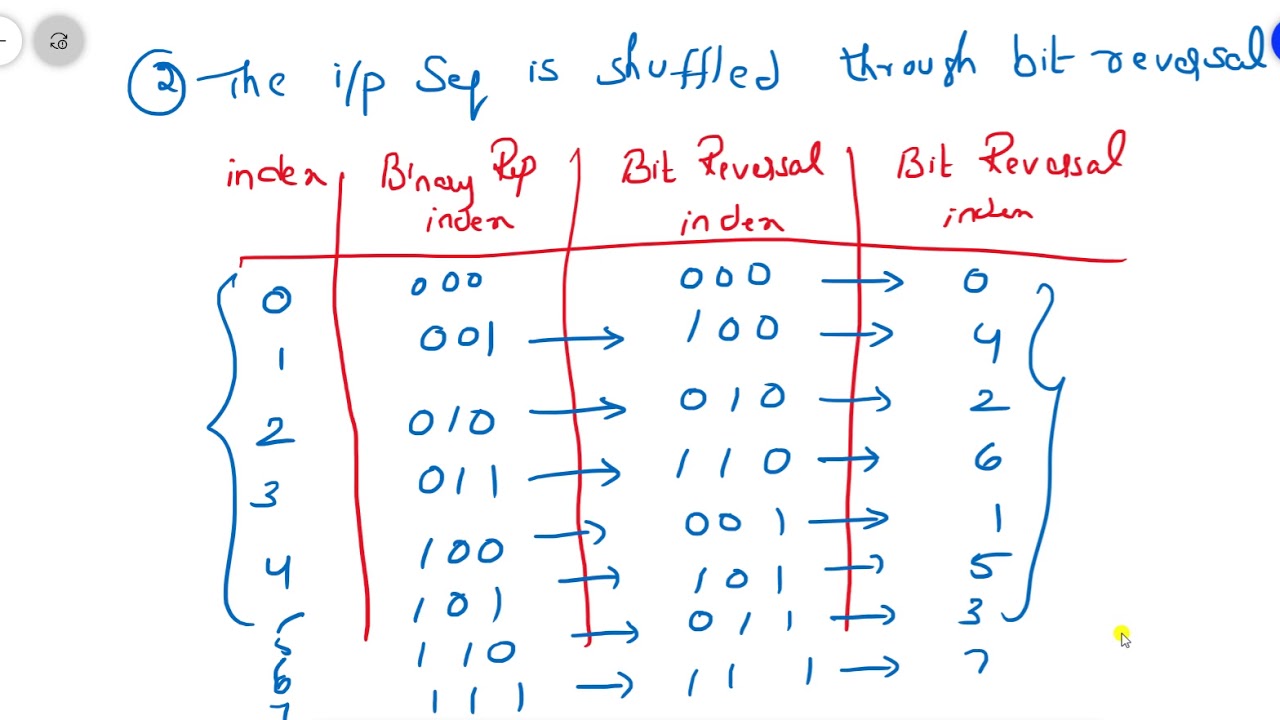 ② The i/p Seq is shuffled through bit reversal
index | Binary Rep index | Bit Reversal index | Bit Reversal index
0 000 000 → 0
1 001 → 100 → 4
2 010 → 010 → 2
3 011 → 110 → 6
4 100 → 001 → 1
5 101 → 101 → 5
6 110 → 011 → 3
7 111 → 111 → 7